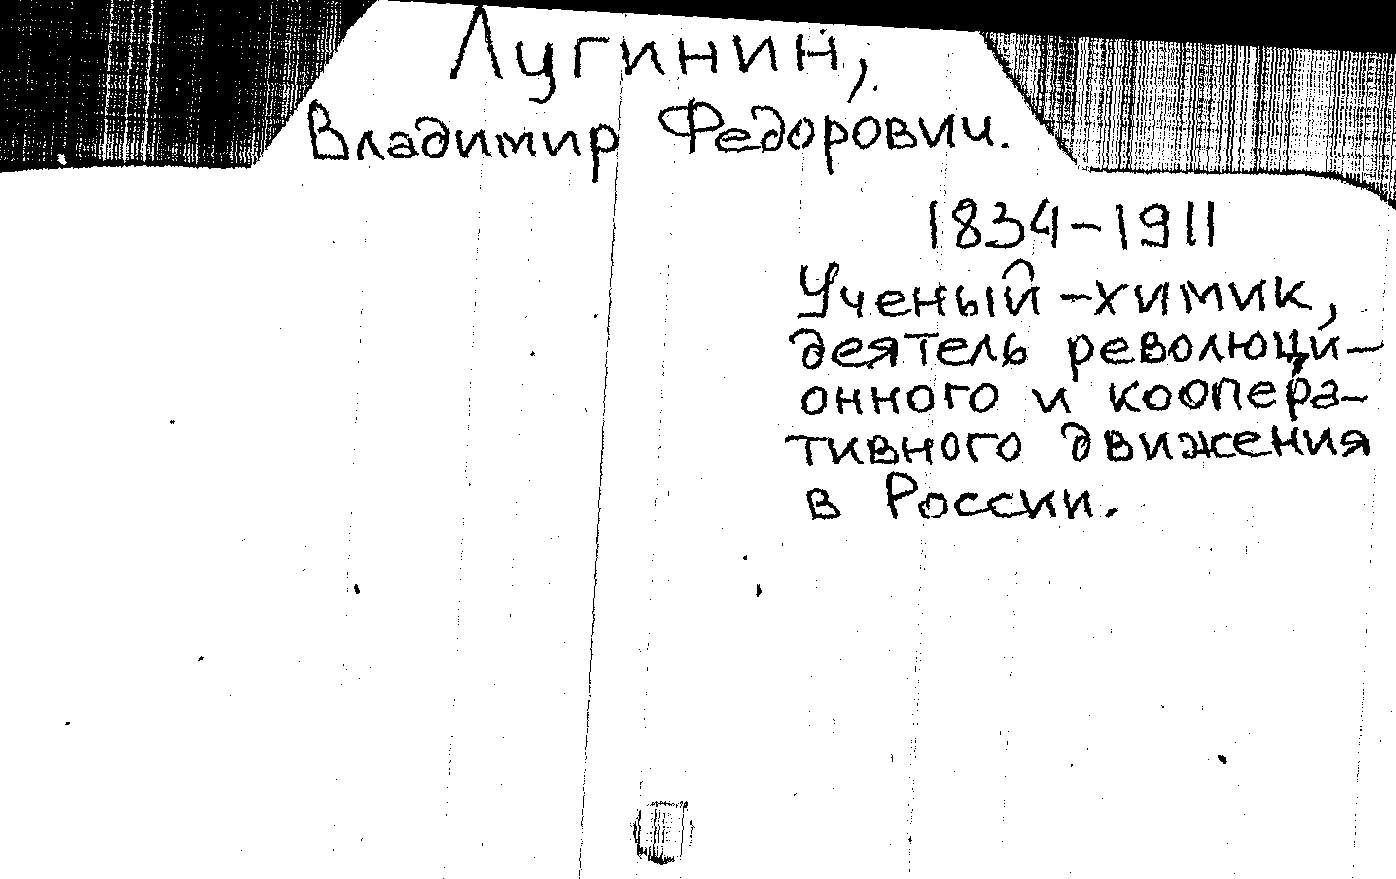 Лугинин,
Владимир Федорович.
1834-1911
Ученый-химик,
деятель революци-
онного и коопера-
тивного движения
в России.